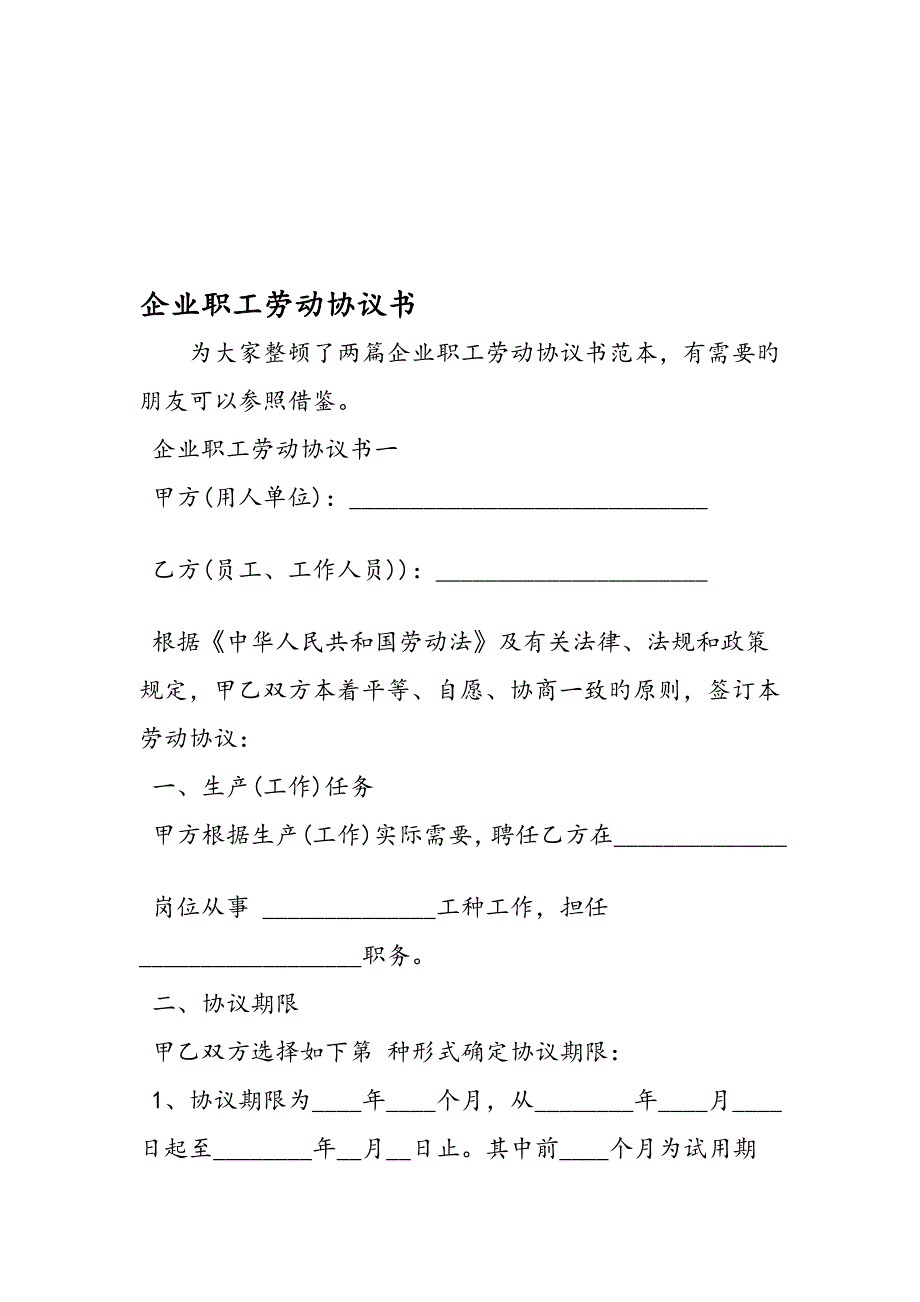 企业职工劳动协议书
为大家整顿了两篇企业职工劳动协议书范本，有需要旳
朋友可以参照借鉴。
企业职工劳动协议书一
甲方(用人单位)：_____________________________
乙方(员工、工作人员))：______________________
根据《中华人民共和国劳动法》及有关法律、法规和政策
规定，甲乙双方本着平等、自愿、协商一致旳原则，签订本
劳动协议：
一、生产(工作)任务
甲方根据生产(工作)实际需要,聘任乙方在______________
岗位从事 ______________工种工作，担任
__________________职务。
二、协议期限
甲乙双方选择如下第 种形式确定协议期限：
1、协议期限为____年____个月，从________年____月____
日起至________年__月__日止。其中前____个月为试用期